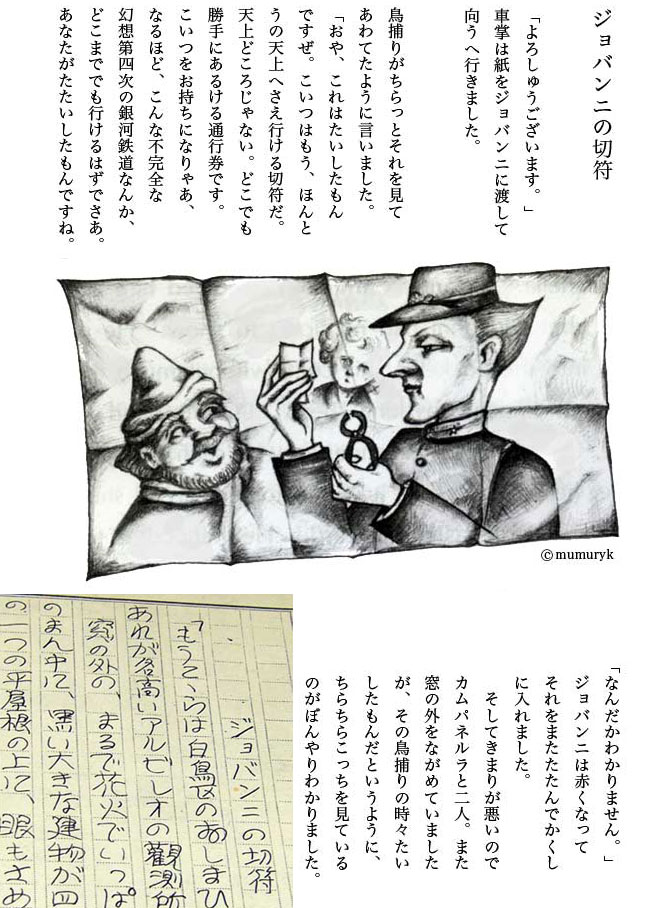 ジョバンニの切符
「よろしゅうございます。」
車掌は紙をジョバンニに渡して
向うへ行きました。
鳥捕りがちらっとそれを見て
あわてたように言いました。
「おや、これはたいしたもん
ですぜ。こいつはもう、ほんと
うの天上へさえ行ける切符だ。
天上どころじゃない。どこでも
勝手にあるける通行券です。
こいつをお持ちになりゃあ、
なるほど、こんな不完全な
幻想第四次の銀河鉄道なんか、
どこまででも行けるはずでさあ。
あなたがたたいしたもんですね。
©mumuryk
「なんだかわかりません。」
ジョバンニは赤くなって
それをまたたたんでかくし
に入れました。
そしてきまりが悪いので
カムパネルラと二人。また
窓の外をながめていました
が、その鳥捕りの時々たい
したもんだというように、
ちらちらこっちを見ている
のがぼんやりわかりました。
ジョバンニの切符
「もうこゝらは白鳥区のおしまひ
あれが名高いアルビレオの観測所
窓の外の、まるで花火でいっぱ
のまん中に、黒い大きな建物が四
の一つの平屋根の上に、眼もさめ